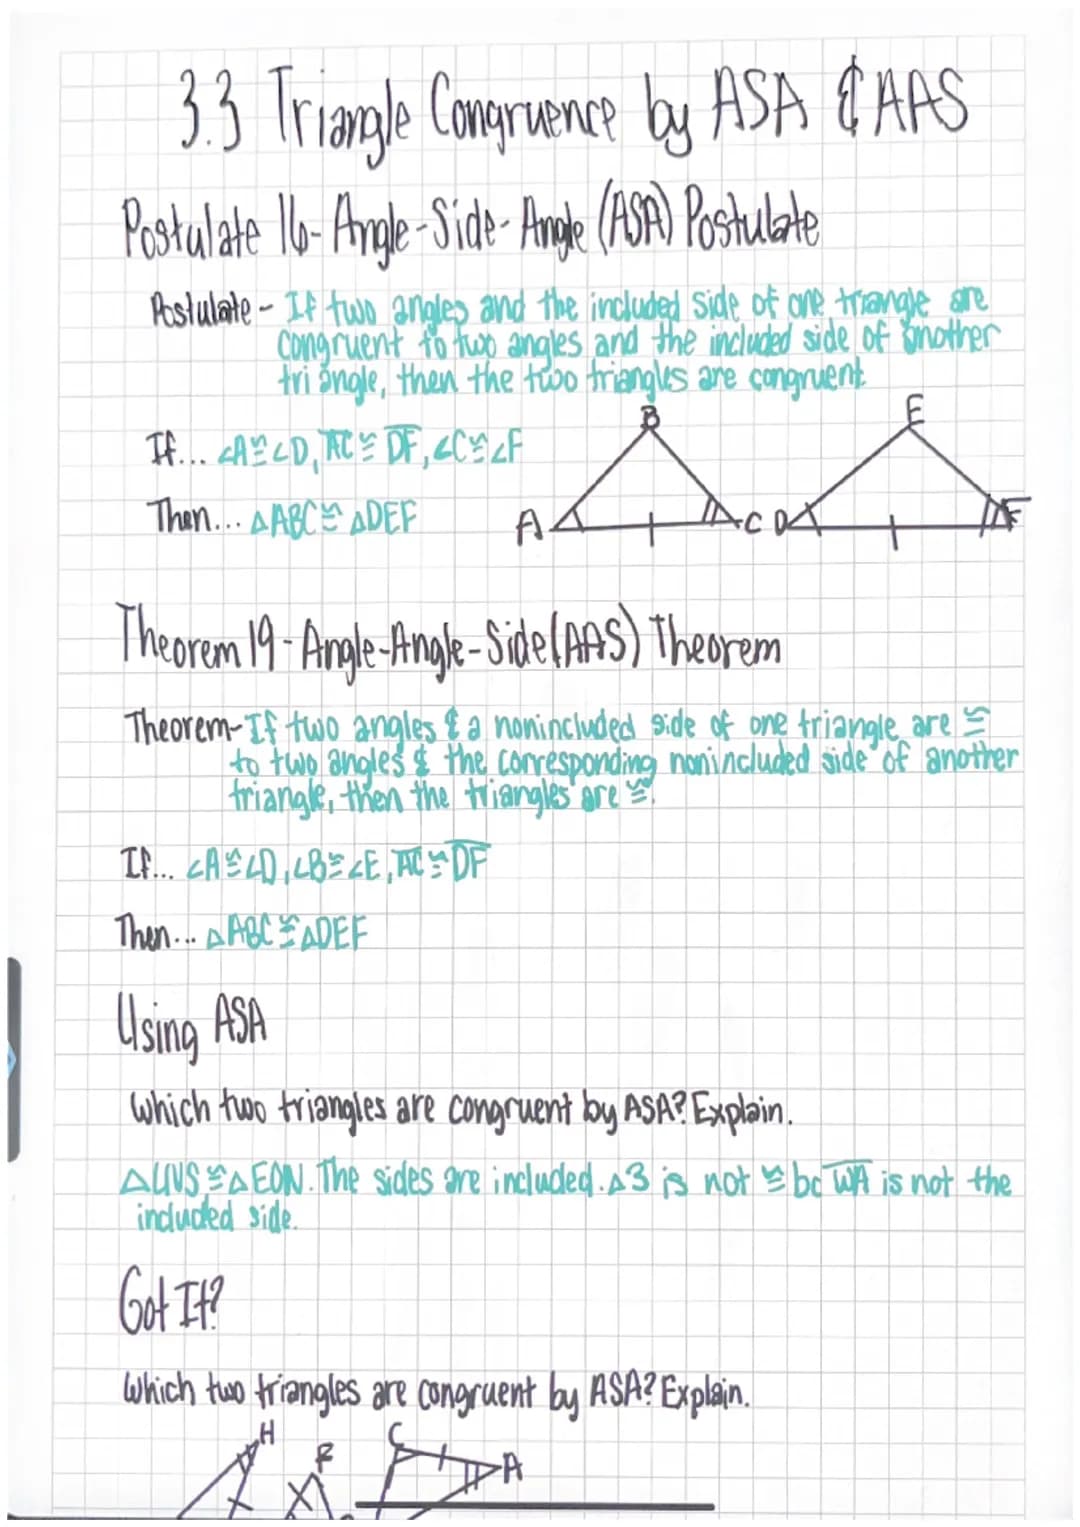 3.3 Triangle Congruence by ASA & AAS
Postulate 16- Angle-Side-Angle (ASA) Postulate
Postulate - If two angles and the included side of one triangle are
congruent to two angles and the included side of another
triangle, then the two triangles are congruent
If... ∠A≅∠D, AC≅DF, ∠C≅∠F
Then... △ABC≅△DEF
B
E
A
C
D
F
Theorem 19-Angle-Angle-Side(AAS) Theorem
Theorem-If two angles & a nonincluded side of one triangle are ≅
to two angles & the corresponding nonincluded side of another
triangle, then the triangles are ≅.
If... ∠A≅∠D, ∠B≅∠E, AC≅DF
Then... △ABC≅△DEF
Using ASA
Which two triangles are congruent by ASA? Explain.
△UVS≅△EON. The sides are included. △3 is not ≅ bc WA is not the
included side.
Got It?
Which two triangles are congruent by ASA? Explain.
H
F
C
A